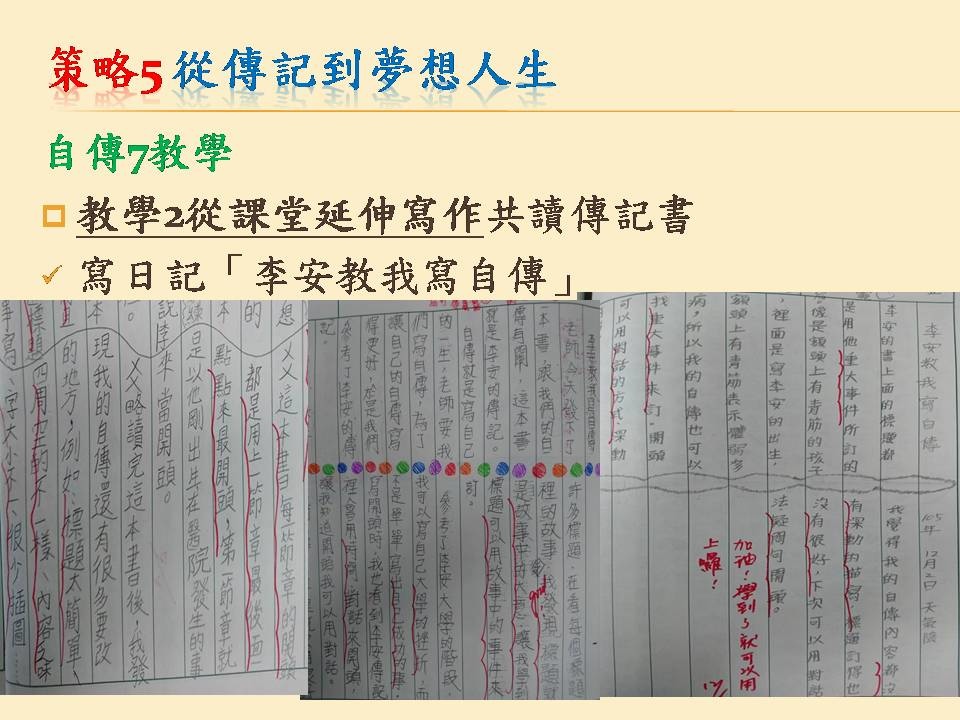 策略5 從傳記到夢想人生
自傳7教學
教學2從課堂延伸寫作共讀傳記書
寫日記「李安教我寫自傳」
想
又又這本書每節章的開頭
都是用上一節章最後面一
點點來最開頭，第一節章就
是以他剛出生在醫院發生的事
來當開頭。
又又略讀完這本書後，我發
現我的自傳還有很多要改
的地方，例如：標題太簡單、
四用空的不一樣、內容乏味
、字大小不一、很少插圖
老師今天發下了
本書，跟我們的自
傳有關，這本書
就是李安的傳記。
自傳就是寫自己
的一生，老師要我
們寫自傳，為了
讓自己的自傳寫
得更好，於是我們
參考了李安的傳
記。
許多標題，在看每個標題
裡的故事，我發現，標題就
標題可以用故事中的事件來
訂。
參考了李安大學的階段，
我可以寫自己大學的挫折，而
不是單單寫出自己成功的事，
寫開頭時，我也看到李安傳記
裡會用時間、對話來開頭，
讓我知道開頭我可以用對話。
105年 12月2日 天氣陰
李安教我寫自傳
李安的書上面的標題都
是用他重大事件所訂的
像是額頭上有青筋的孩子
，裡面是寫李安的出生，
額頭上有青筋表示體弱多
病，所以我的自傳也可以
找重大事件來訂。開頭
可以用對話的方式，深動
我覺得我的自傳內容都沒
有深動的描寫，標題訂得也
沒有很好，下次可以用對話
法疑問句開頭。
加油！學到了就可以用
上囉！
12/